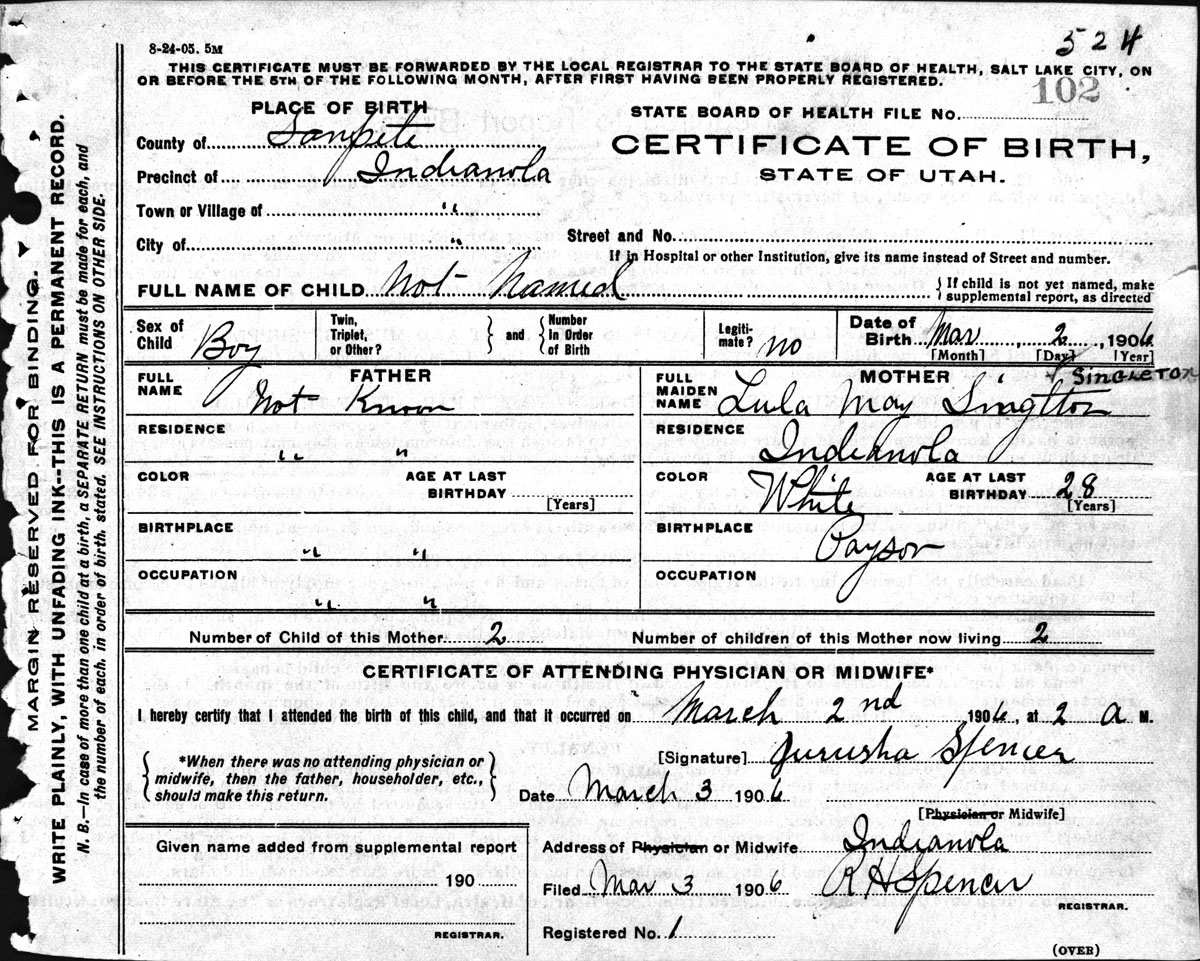 524
8-24-05. 5M
THIS CERTIFICATE MUST BE FORWARDED BY THE LOCAL REGISTRAR TO THE STATE BOARD OF HEALTH, SALT LAKE CITY, ON
OR BEFORE THE 5TH OF THE FOLLOWING MONTH, AFTER FIRST HAVING BEEN PROPERLY REGISTERED.
102
PLACE OF BIRTH
STATE BOARD OF HEALTH FILE No.
County of Sanpete
CERTIFICATE OF BIRTH,
Precinct of Indianola
STATE OF UTAH.
Town or Village of "
City of " Street and No.
If in Hospital or other Institution, give its name instead of Street and number.
FULL NAME OF CHILD Not Named { If child is not yet named, make
supplemental report, as directed
Sex of Child Boy
Twin, Triplet, or Other?
} and {
Number In Order of Birth
Legiti- mate? no
Date of Birth Mar 2, 1906
[Month] [Day] [Year]
FATHER
FULL NAME Not Knoon
RESIDENCE " "
COLOR
AGE AT LAST BIRTHDAY
[Years]
BIRTHPLACE " "
OCCUPATION " "
MOTHER
SINGLETON
FULL MAIDEN NAME Lula May Singtton
RESIDENCE Indianola
COLOR White
AGE AT LAST BIRTHDAY 28
[Years]
BIRTHPLACE Payson
OCCUPATION
Number of Child of this Mother 2 Number of children of this Mother now living 2
CERTIFICATE OF ATTENDING PHYSICIAN OR MIDWIFE*
I hereby certify that I attended the birth of this child, and that it occurred on March 2nd 1906, at 2 a M.
{ *When there was no attending physician or
midwife, then the father, householder, etc.,
should make this return. }
[Signature] Jurusha Spencer
Date March 3 1906
[Physician or Midwife]
Given name added from supplemental report
190
REGISTRAR.
Address of Physician or Midwife Indianola
Filed Mar 3 1906 R H Spencer
REGISTRAR.
Registered No. 1
(OVER)
MARGIN RESERVED FOR BINDING.
WRITE PLAINLY, WITH UNFADING INK--THIS IS A PERMANENT RECORD.
N. B.—In case of more than one child at a birth, a SEPARATE RETURN must be made for each, and
the number of each, in order of birth, stated. SEE INSTRUCTIONS ON OTHER SIDE.